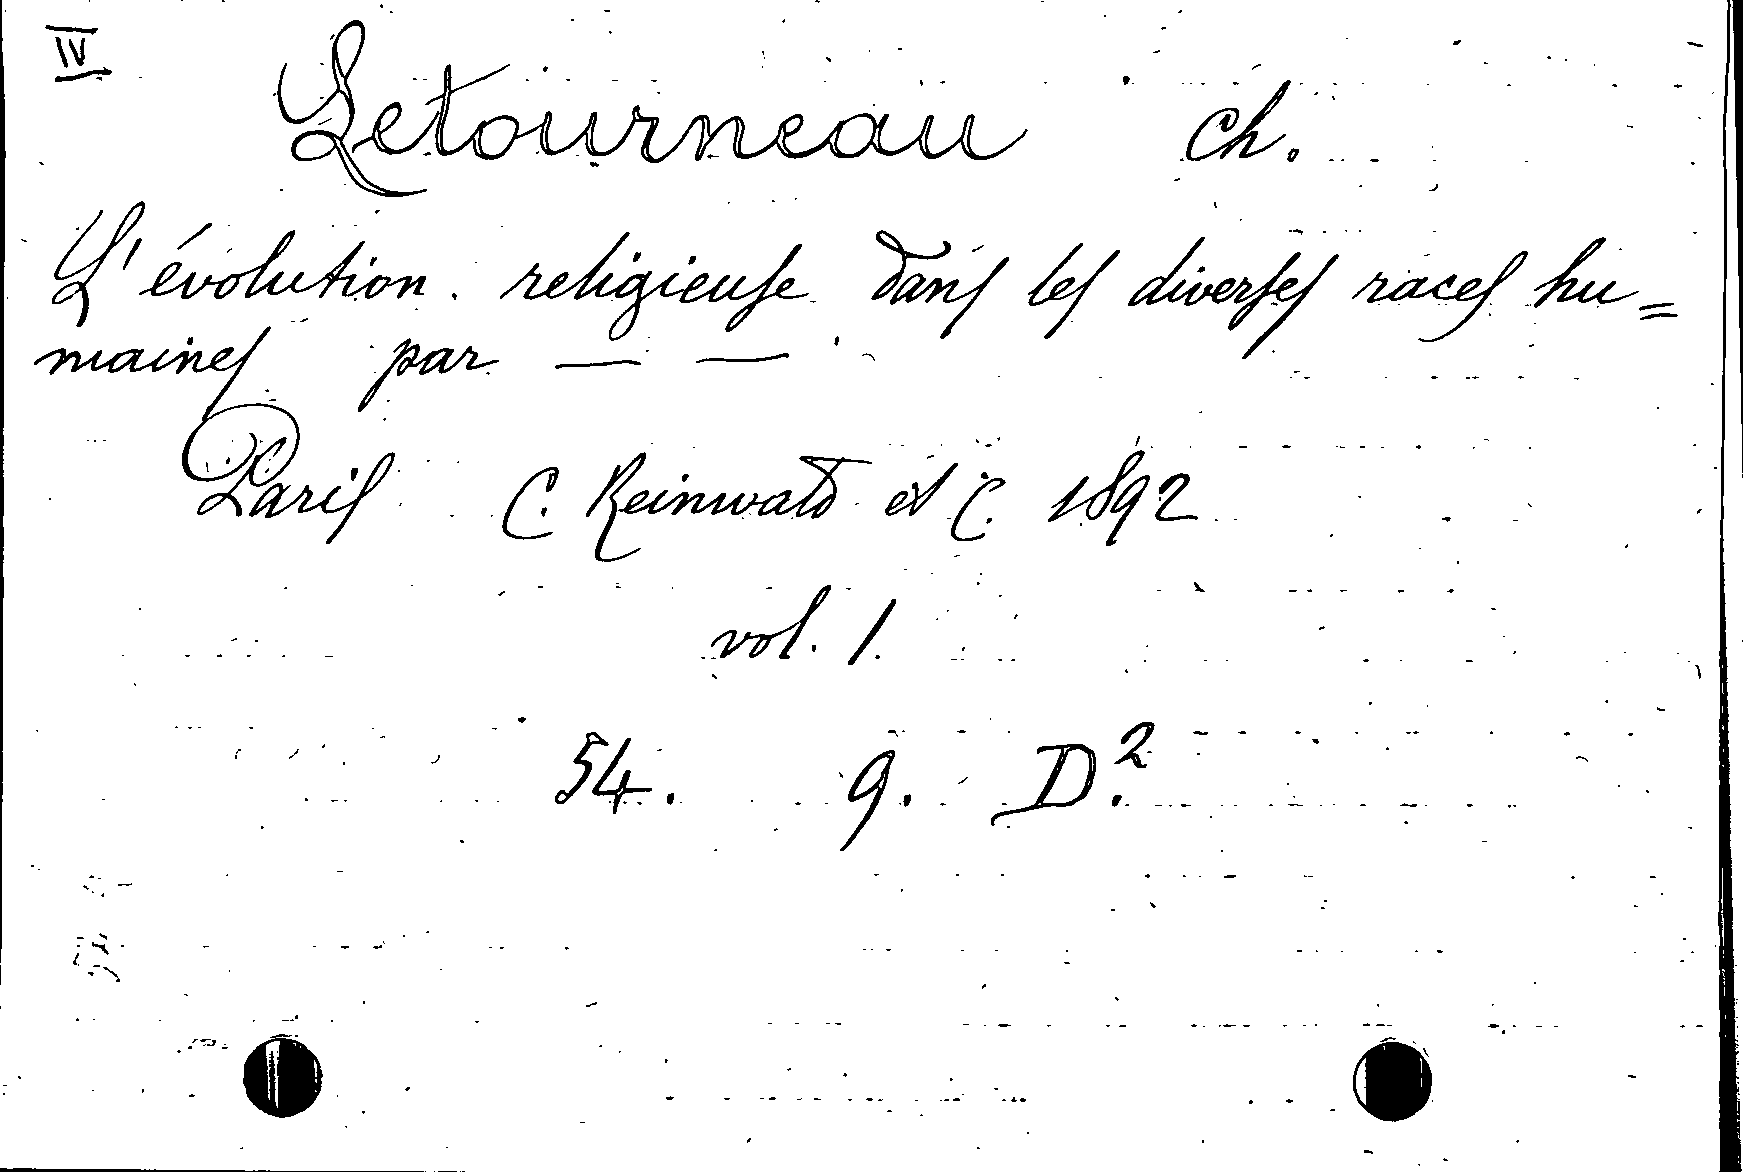 IV
Letourneau Ch.
L'évolution religieuse dans les diverses races hu=
maines par — —
Paris C. Reinwald et C. 1892
vol. 1.
54. 9. D².